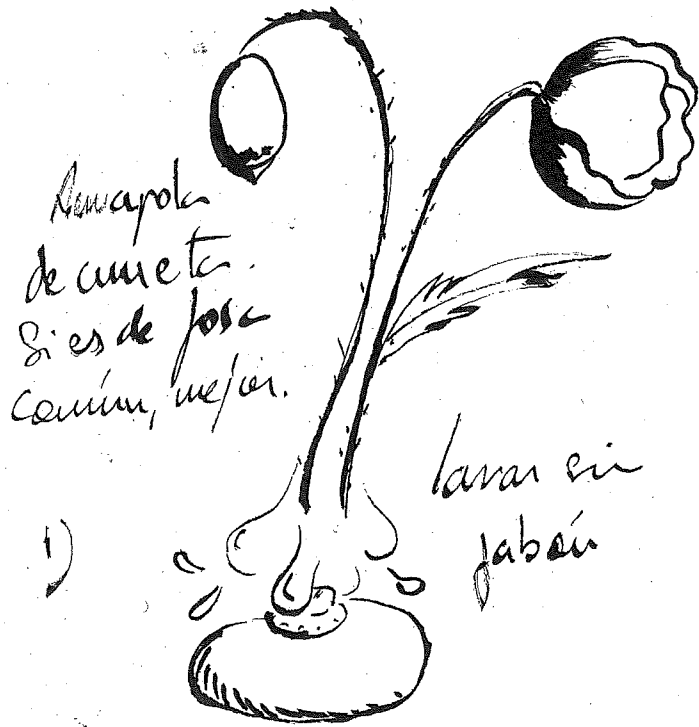 Amapola
de cuneta.
Si es de fosa
común, mejor.
lavar sin
jabón
1)